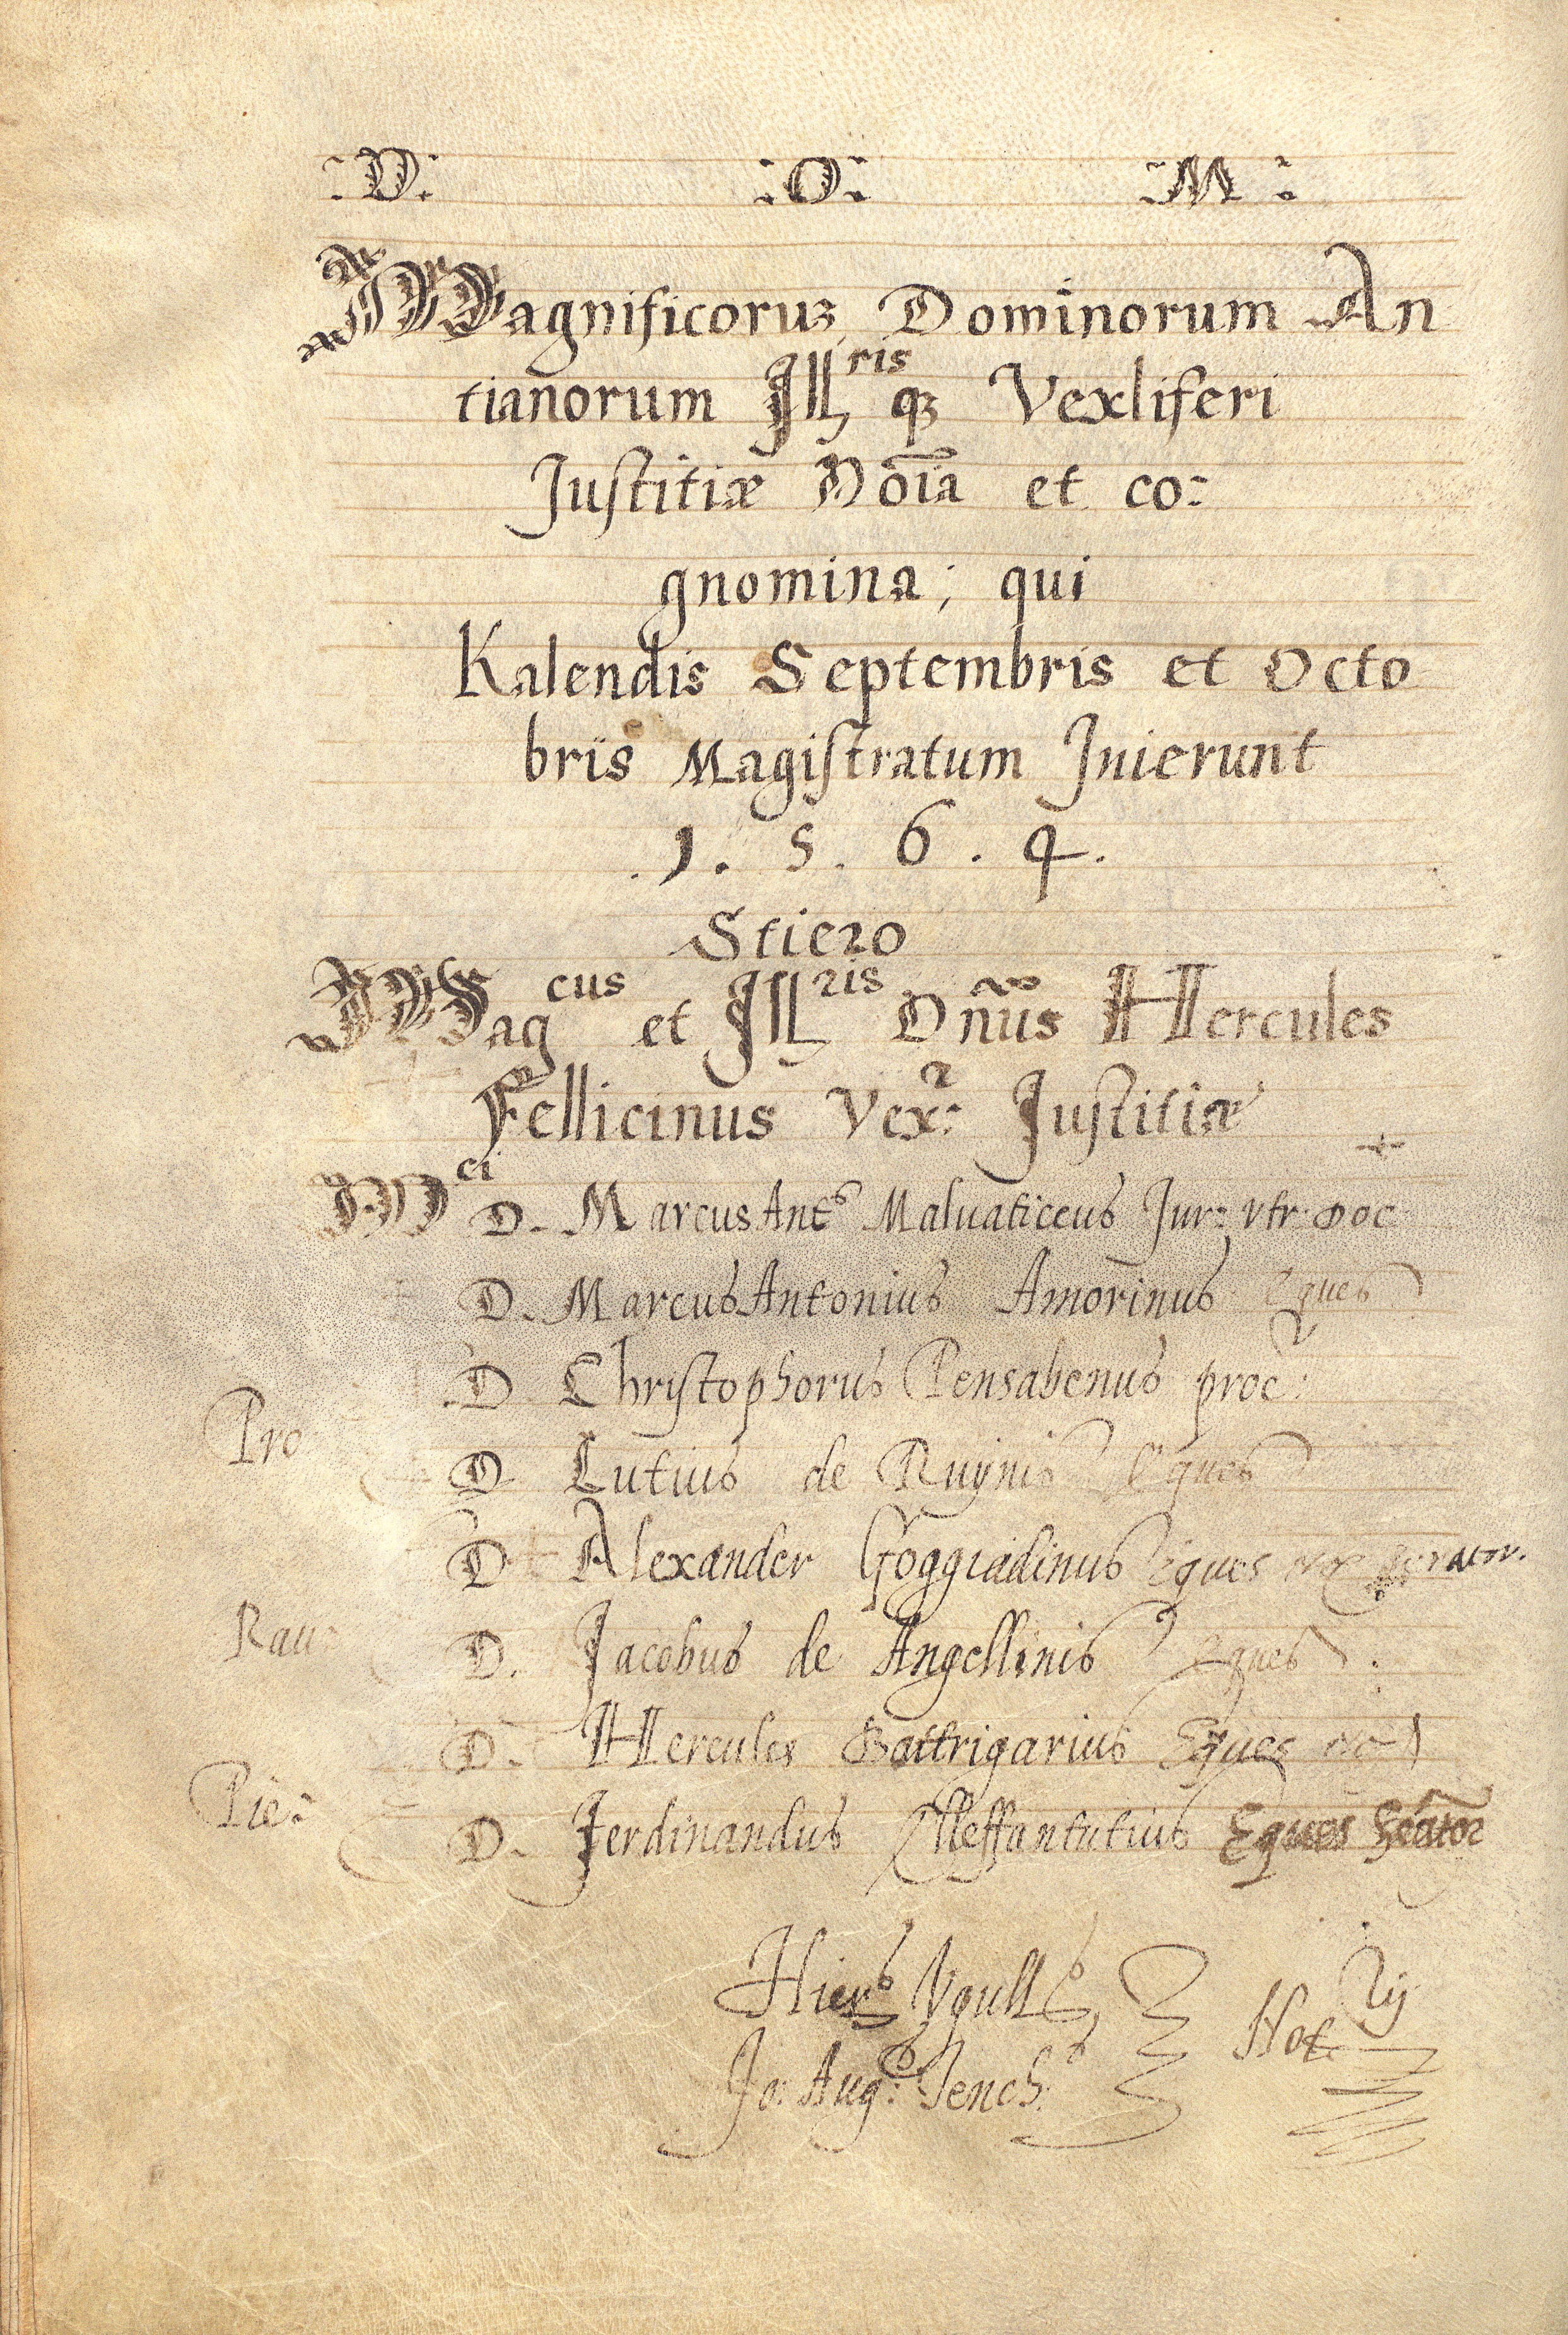 :D: :O: :M:
Magnificoruʒ Dominorum An
tianorum Ill^ris qʒ Vexliferi
Justitiæ Nõia et co:
gnomina; qui
Kalendis Septembris et Octo
bris Magistratum Inierunt
.1. 5. 6. 4.
Stiero
Mag^cus et Ill^ris Dñus Hercules
Fellicinus Vex^r: Justitiæ
M^ci D. Marcus Ant^s Maluaticeus Jur: Vtr. Doc
D. Marcus Antonius Amorinus Eques
D Christophorus Pensabenus proc:
Pro D Lutius de Ruynis Eques
D Alexander Foggiadinus Eques
Rau: D. Jacobus de Angellinis Eques.
D. Hercules Bottrigarius Eques
Pie: D. Ferdinandus Elleffantutius Eques Senator
Hier^s Vgull^s Not^rij
Jo: Aug^s: Sench^s